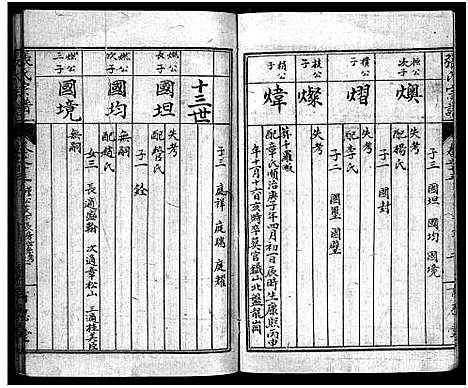 極公次子
燠
失考
配楊氏
子三 國坦 國均 國境
樸公子
熠
失考
配李氏
子一 國封
技公子
燦
失考
子二 國璽 國璧
楨公子
煒
葬十羅畈
配章氏順治庚子年四月初一日辰時生康熙丙申
年十月十六日亥時卒葬官鐵山北盤龍崗
子三 庭祥 庭瑞 庭耀
十三世
燃公長子
國坦
失考
配詹氏
子一 銓
燃公次子
國均
配趙氏
無嗣
女三 長適盛翰 次適章松山 三適桂美臣
燃公三子
國境
失考
無嗣